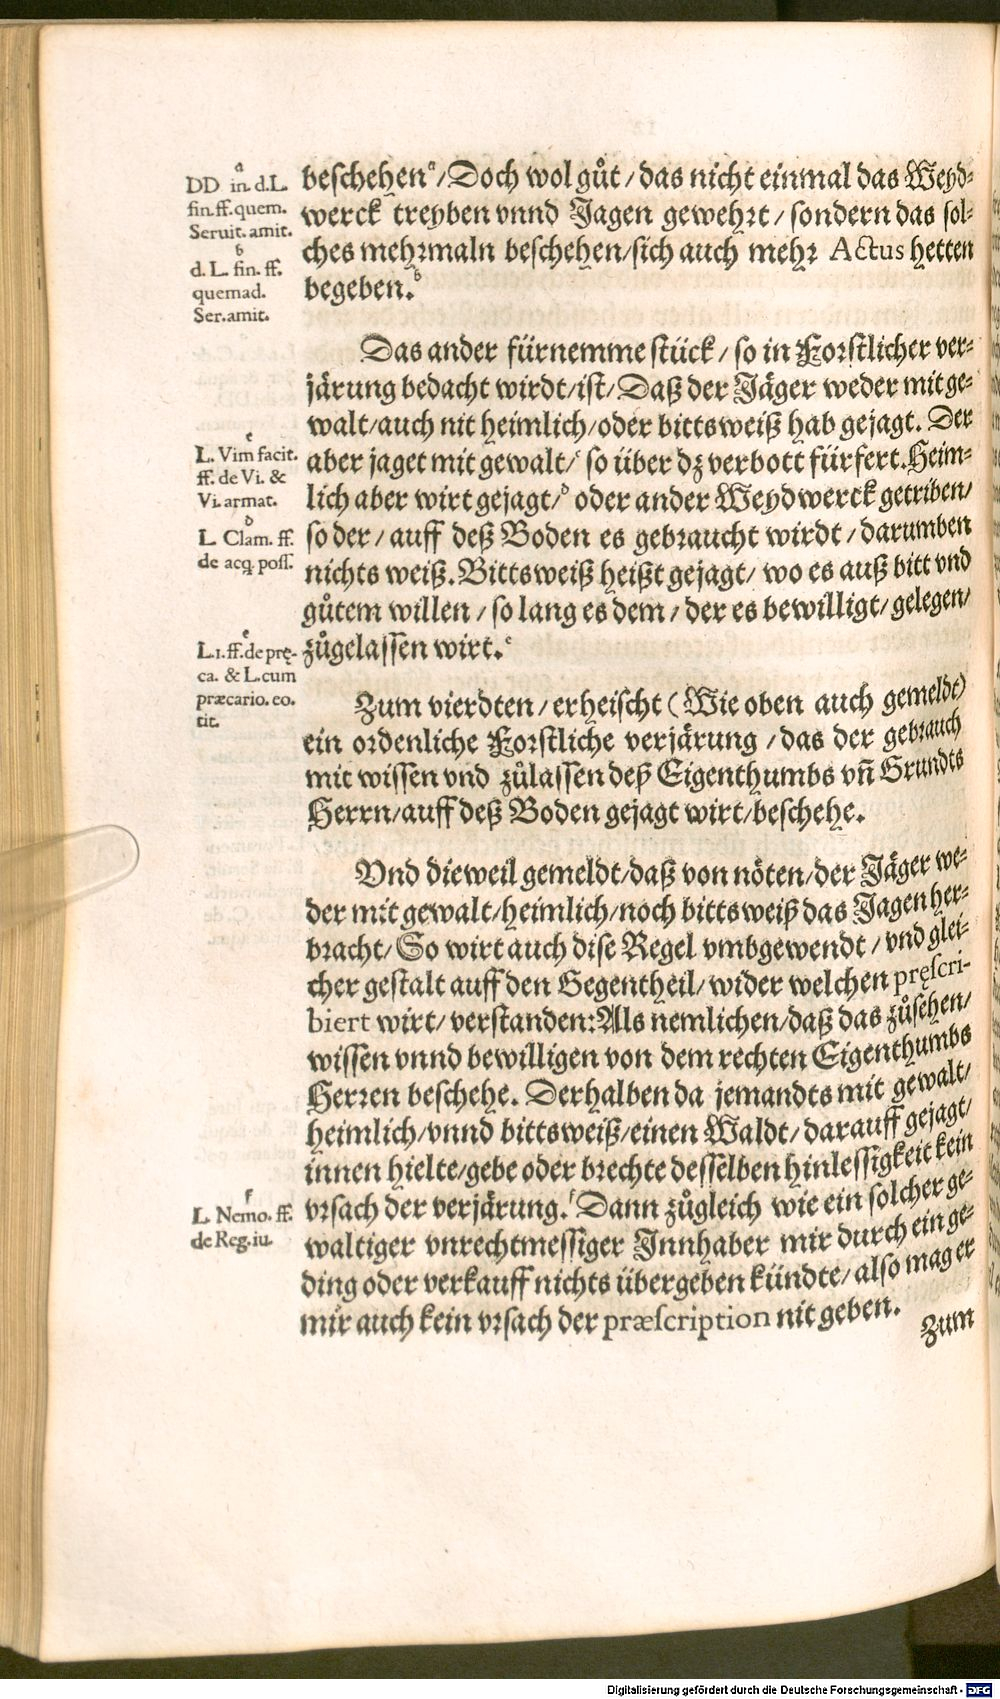 a
DD in. d. L.
fin. ff. quem.
Seruit. amit.
b
d. L. fin. ff.
quemad.
Ser. amit.
beschehenᵃ/ Doch wol gůt/ das nicht einmal das Weyd-
werck treyben vnnd Jagen gewehrt/ sondern das sol-
ches mehrmaln beschehen/ sich auch mehr Actus hetten
begeben.ᵇ
Das ander fürnemme stück/ so in Forstlicher ver-
järung bedacht wirdt/ ist/ Daß der Jäger weder mit ge-
walt/ auch nit heimlich/ oder bittsweiß hab gejagt. Der
aber jaget mit gewalt/ᶜ so über dz verbott fürfert. Heim-
lich aber wirt gejagt/ᵈ oder ander Weydwerck getriben/
so der/ auff deß Boden es gebraucht wirdt/ darumben
nichts weiß. Bittsweiß heißt gejagt/ wo es auß bitt vnd
gůtem willen/ so lang es dem/ der es bewilligt/ gelegen/
zůgelassen wirt.ᵉ
c
L. Vim facit.
ff. de Vi. &
Vi. armat.
d
L. Clam. ff.
de acq. poss.
e
L. 1. ff. de pręca. & L. cum
præcario. eo.
tit.
Zum vierdten/ erheischt (Wie oben auch gemeldt)
ein ordenliche Forstliche verjärung/ das der gebrauch
mit wissen vnd zůlassen deß Eigenthumbs vñ Grundts
Herrn/ auff deß Boden gejagt wirt/ beschehe.
Vnd dieweil gemeldt/ daß von nöten/ der Jäger we-
der mit gewalt/ heimlich/ noch bittsweiß das Jagen her-
bracht/ So wirt auch dise Regel vmbgewendt/ vnd glei-
cher gestalt auff den Gegentheil/ wider welchen pręscri-
biert wirt/ verstanden: Als nemlichen/ daß das zůsehen/
wissen vnnd bewilligen von dem rechten Eigenthumbs
Herren beschehe. Derhalben da jemandts mit gewalt/
heimlich/ vnnd bittsweiß/ einen Waldt/ darauff gejagt/
innen hielte/ gebe oder brechte desselben hinlessigkeit kein
vrsach der verjärung.ᶠ Dann zůgleich wie ein solcher ge-
waltiger vnrechtmessiger Jnnhaber mir durch ein ge-
ding oder verkauff nichts übergeben kündte/ also mag er
mir auch kein vrsach der præscription nit geben.
f
L. Nemo. ff.
de Reg. iu.
Zum
Digitalisierung gefördert durch die Deutsche Forschungsgemeinschaft - DFG